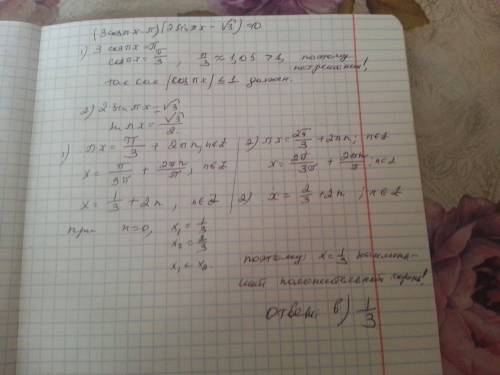 (3cosπx-π)(2sinπx-√3)=0.
1) 3 cosπx=π
cosπx=π/3, π/3≈1,05>1, поэтому нет решений!
Так как |cosπx|≤1 должен.
2) 2 sinπx=√3
sinπx=√3/2
1) πx=π/3+2πn; n∈Z
x=π/3π+2πn/π; n∈Z
x=1/3+2n, n∈Z
2) πx=2π/3+2πn; n∈Z
x=2π/3π+2πn/π; n∈Z
2) x=2/3+2n; n∈Z
при n=0, x₁=1/3
x₂=2/3
x₁<x₂
поэтому: x=1/3 наимень-
ший положительный корень!
Ответ: в) 1/3